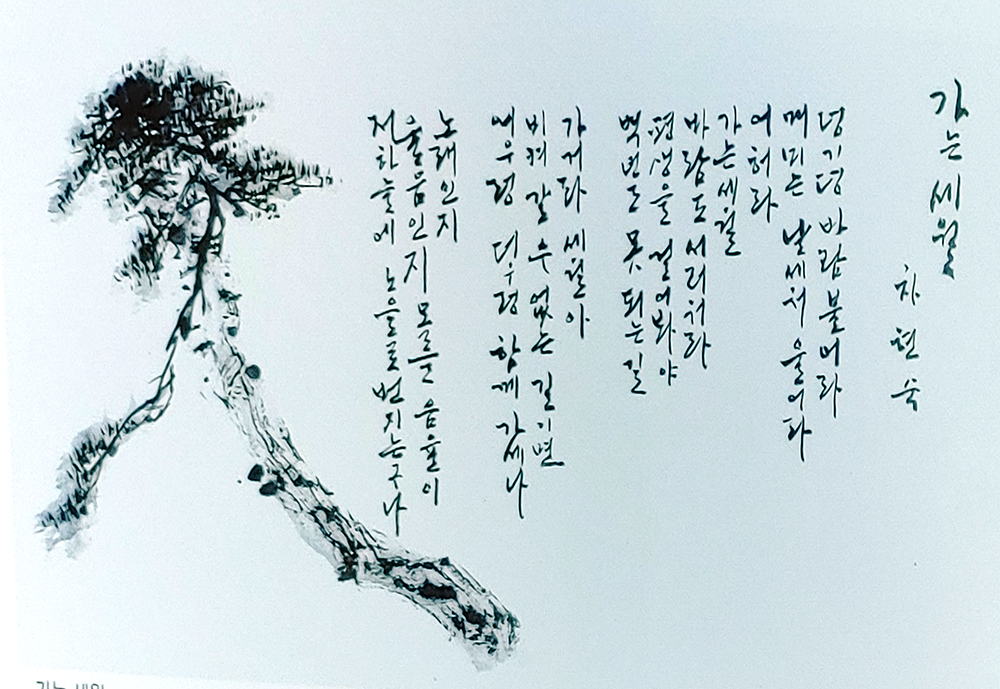 가는 세월
차현숙
덩기덩 바람 불어라
매미는 날세워 울어라
어허라
가는 세월
바람도 서러워라
평생을 걸어봐야
백번도 못 되는 길
가거라 세월아
비켜 갈 수 없는 길이면
어우렁 더우렁 함께 가세나
노래인지
울음인지 모를 음율이
저 하늘에 노을로 번지는구나
가는 세월